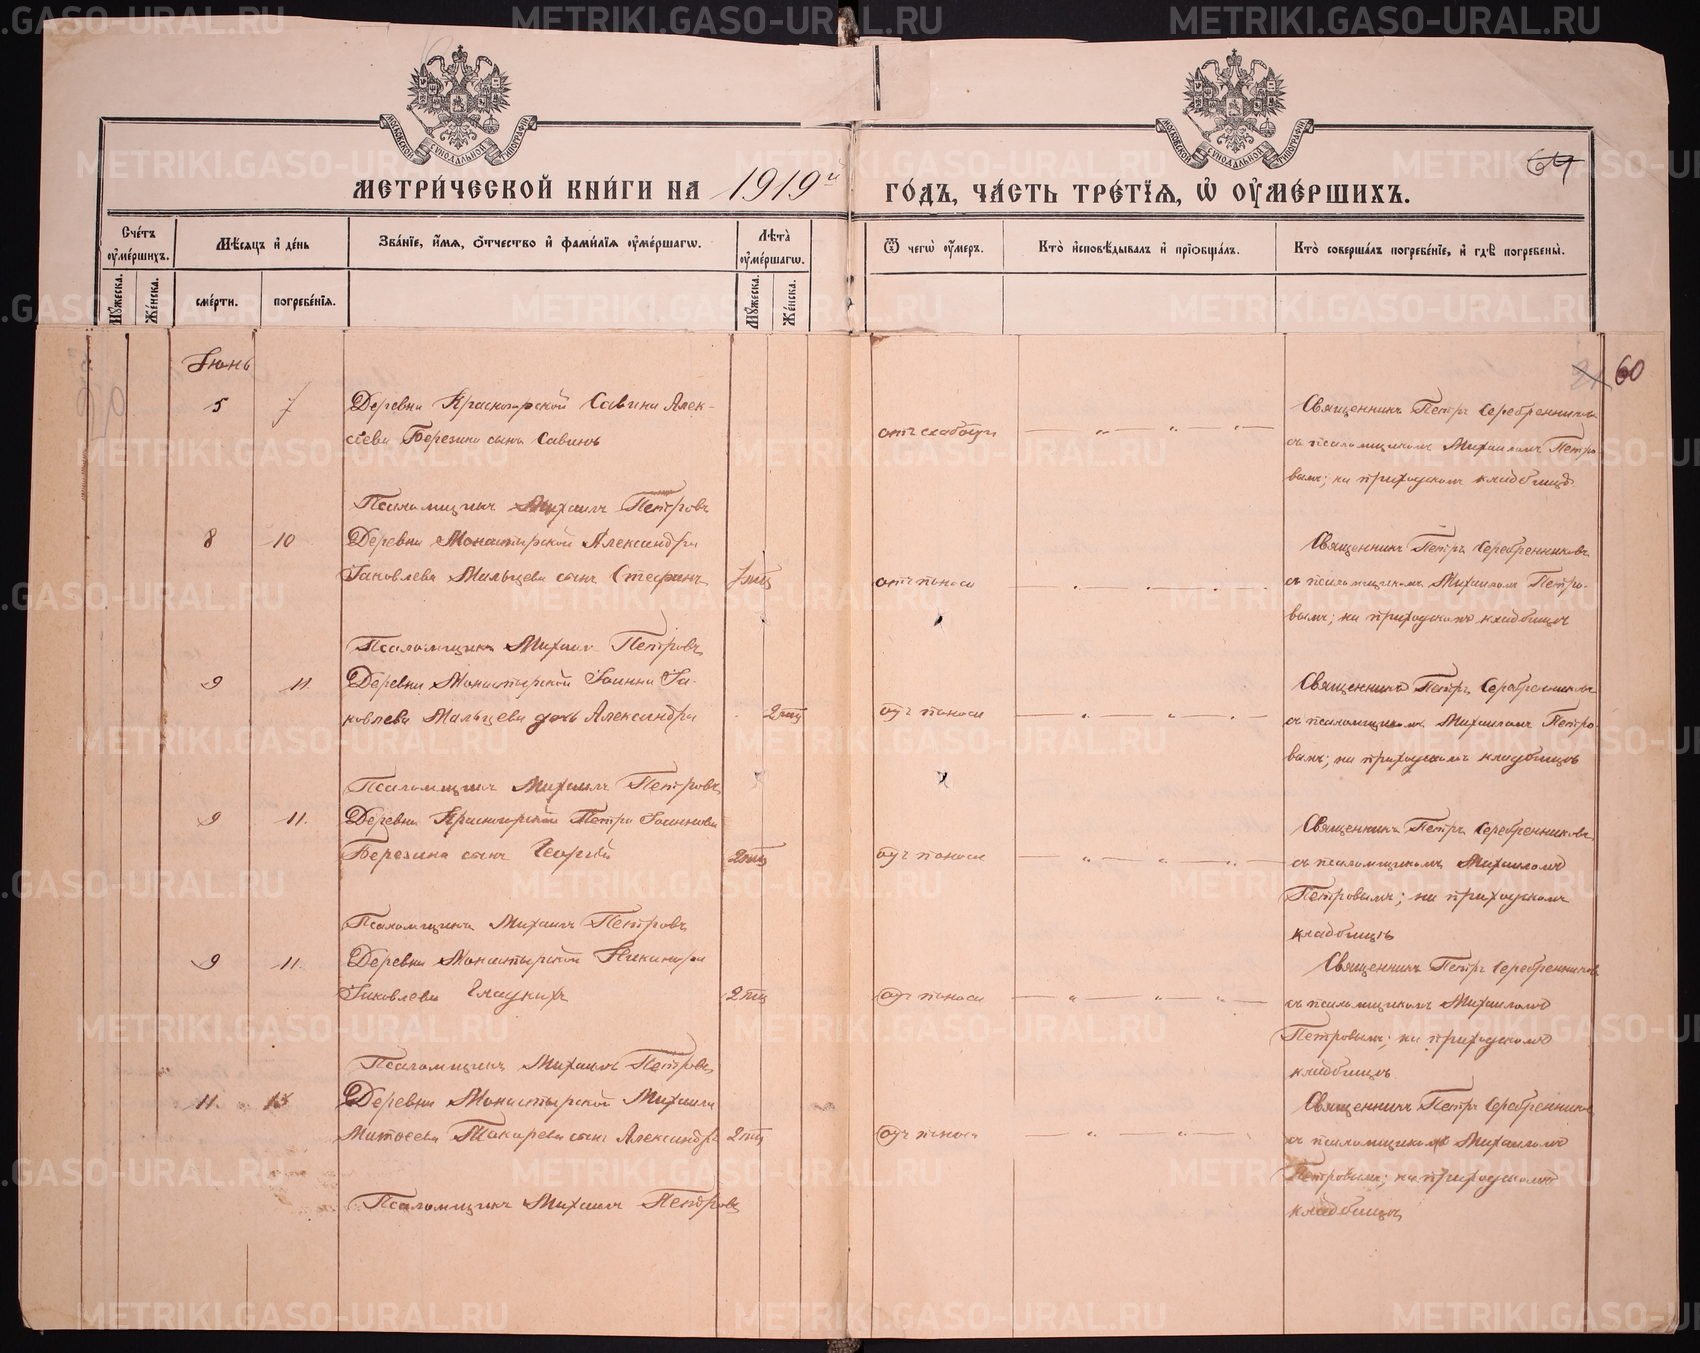 МЕТРИ́ЧЕСКОЙ КНИ́ГИ НА 1919й ГО́ДЪ, ЧА́СТЬ ТРЕ́ТІѦ, Ѡ ОУМЕ́РШИХЪ.
64
Счетъ оумершихъ.
Мужеска.
Женска.
Мѣсяцъ и день
смерти.
погребенія.
Званіе, имя, отчество и фамилія оумершагѡ.
Лѣта оумершагѡ.
Мужеска.
Женска.
Ѿ чегѡ оумеръ.
Кто исповѣдывалъ и пріобщалъ.
Кто совершалъ погребеніе, и гдѣ погребены.
60
Іюнь
5 7 Деревни Красногорской Савина Алек-
сѣева Березина сынъ Савинъ
отъ слабости
Священникъ Петръ Серебренниковъ
съ псаломщикомъ Михаиломъ Петро-
вымъ; на приходскомъ кладбищѣ
Псаломщикъ Михаилъ Петровъ
8 10 Деревни Монастырской Александра
Іаковлева Мальцева сынъ Стефанъ
отъ поноса
Священникъ Петръ Серебренниковъ
съ псаломщикомъ Михаиломъ Петро-
вымъ; на приходскомъ кладбищѣ
Псаломщикъ Михаилъ Петровъ
9 11 Деревни Монастырской Іоанна Іа-
ковлева Мальцева дочь Александра 2 мц
отъ поноса
Священникъ Петръ Серебренниковъ
съ псаломщикомъ Михаиломъ Петро-
вымъ; на приходскомъ кладбищѣ
Псаломщикъ Михаилъ Петровъ
9 11. Деревни Красногорской Петра Іоаннова
Березина сынъ Георгій 2 мц
отъ поноса
Священникъ Петръ Серебренниковъ
съ псаломщикомъ Михаиломъ
Петровымъ; на приходскомъ
кладбищѣ
Псаломщикъ Михаилъ Петровъ
9 11. Деревни Монастырской Никанора
Іаковлева Гладкихъ 2 мц
отъ поноса
Священникъ Петръ Серебренниковъ
съ псаломщикомъ Михаиломъ
Петровымъ; на приходскомъ
кладбищѣ
Псаломщикъ Михаилъ Петровъ
11. 13 Деревни Монастырской Михаила
Матѳеева Токарева сынъ Александръ 2 мц
отъ поноса
Священникъ Петръ Серебренниковъ
съ псаломщикомъ Михаиломъ
Петровымъ; на приходскомъ
кладбищѣ
Псаломщикъ Михаилъ Петровъ
METRIKI.GASO-URAL.RU